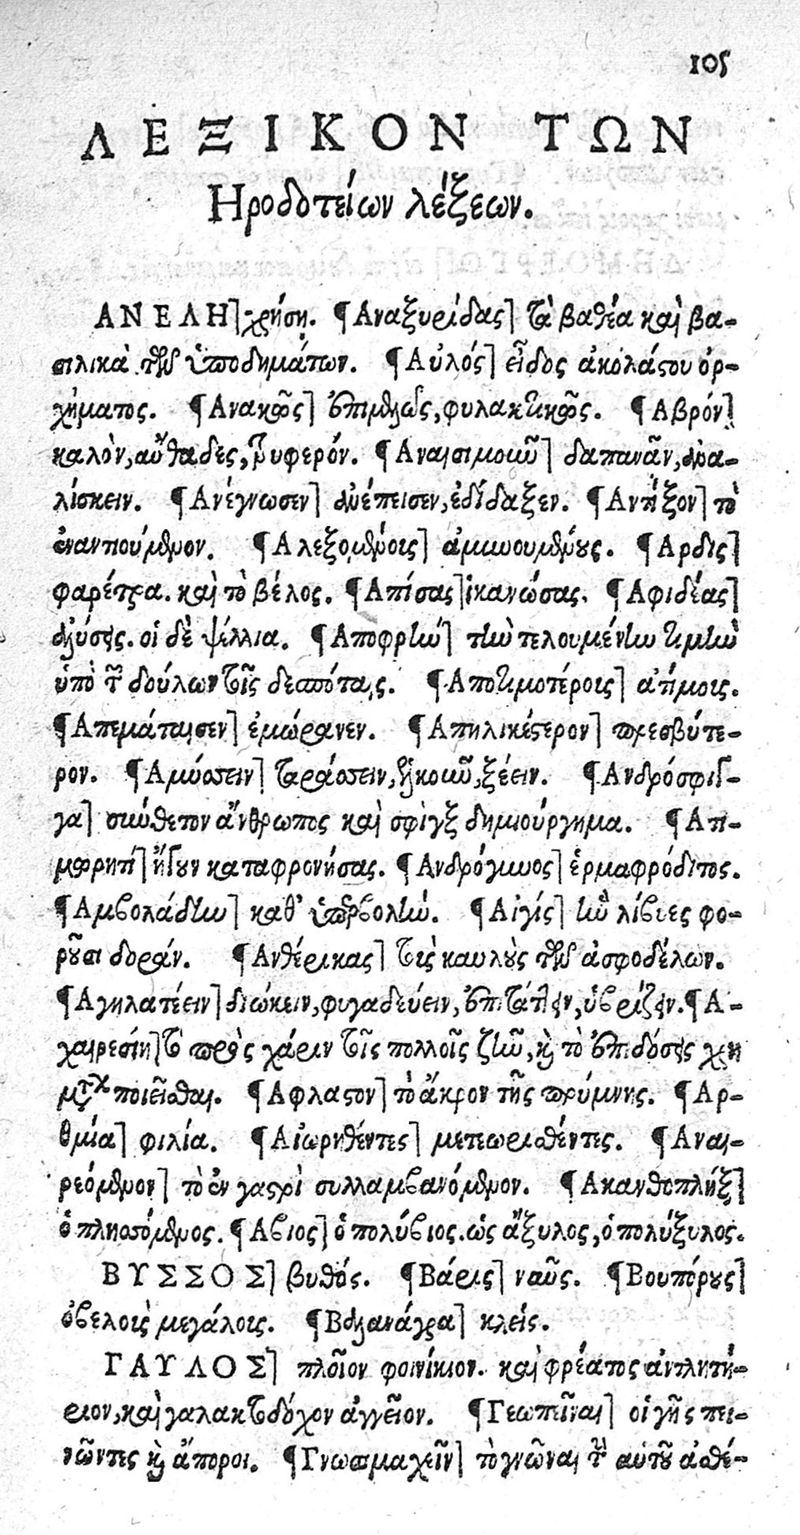 105
ΛΕΞΙΚΟΝ ΤΩΝ
Ηροδοτείων λέξεων.
ΑΝΕΛΗ] χρήση. ¶Αναξυρίδας] τὰ βαθέα καὶ βα-
σιλικὰ τῶν ὑποδημάτων. ¶Αὐλός] εἶδος ἀκολάστου ὀρ-
χήματος. ¶Ανακῶς] ἐπιμελῶς, φυλακτικῶς. ¶Αβρόν]
καλὸν, αὔθαδες, τρυφερόν. ¶Αναισιμοῦν] δαπανᾶν, ἀνα-
λίσκειν. ¶Ανέγνωσεν] ἀνέπεισεν, ἐδίδαξεν. ¶Αντῆξον] τὸ
ἐναντιούμενον. ¶Αλεξομένοις] ἀμυνουμένους. ¶Αρδις]
φαρέτρα. καὶ τὸ βέλος. ¶Απίσας] ἱκανώσας. ¶Αφιδέας]
ἁλύσεις. οἱ δὲ ψέλλια. ¶Αποφρὴν] τὴν τελουμένην τιμὴν
ὑπὸ τῶν δούλων τοῖς δεσπόταις. ¶Αποτιμοτέροις] ἀτίμοις.
¶Απεμάταισεν] ἐμώρανεν. ¶Απηλικέστερον] πρεσβύτε-
ρον. ¶Αμύσσειν] ταράσσειν, ἑλκοῦν, ξέειν. ¶Ανδρόσφιγ-
γα] σκύθετον ἄνθρωπος καὶ σφὶγξ δημιούργημα. ¶Απι-
μωρητί] ἤγουν καταφρονήσας. ¶Ανδρόγυνος] ἑρμαφρόδιτος.
¶Αμβολάδην] καθ' ὑπερβολήν. ¶Αἰγίς] ἣν λίβυες φο-
ροῦσι δοράν. ¶Ανθέρικας] τοὺς καυλοὺς τῶν ἀσφοδέλων.
¶Αγηλατέειν] διώκειν, φυγαδεύειν, ἐπιτάττειν, ὑβρίζειν. ¶Α-
χαιρεσίη] τὸ πρὸς χάριν τοῖς πολλοῖς ζῆν, καὶ τὸ ἐπιδόσεις χρη
ματικὰς ποιεῖσθαι. ¶Αφλαστον] τὸ ἄκρον τῆς πρύμνης. ¶Αρ-
θμία] φιλία. ¶Αἰωρηθέντες] μετεωρισθέντες. ¶Αναι-
ρεόμενον] τὸ ἐν γαστρὶ συλλαμβανόμενον. ¶Ακανθοπλήξ]
ὁ πλησσόμενος. ¶Αβιος] ὁ πολύβιος. ὡς ἄξυλος, ὁ πολύξυλος.
ΒΥΣΣΟΣ] βυθός. ¶Βάρις] ναῦς. ¶Βουπόρους]
ὀβελοὺς μεγάλους. ¶Βαλανάγρα] κλείς.
ΓΑΥΛΟΣ] πλοῖον φοινίκιον. καὶ φρέατος ἀντλητή-
ριον, καὶ γαλακτοδόχον ἀγγεῖον. ¶Γεωπεῖναι] οἱ γῆς πει-
νῶντες καὶ ἄποροι. ¶Γνωσιμαχεῖν] τὸ γνῶναι τὴν αὐτοῦ ἀσθέ-